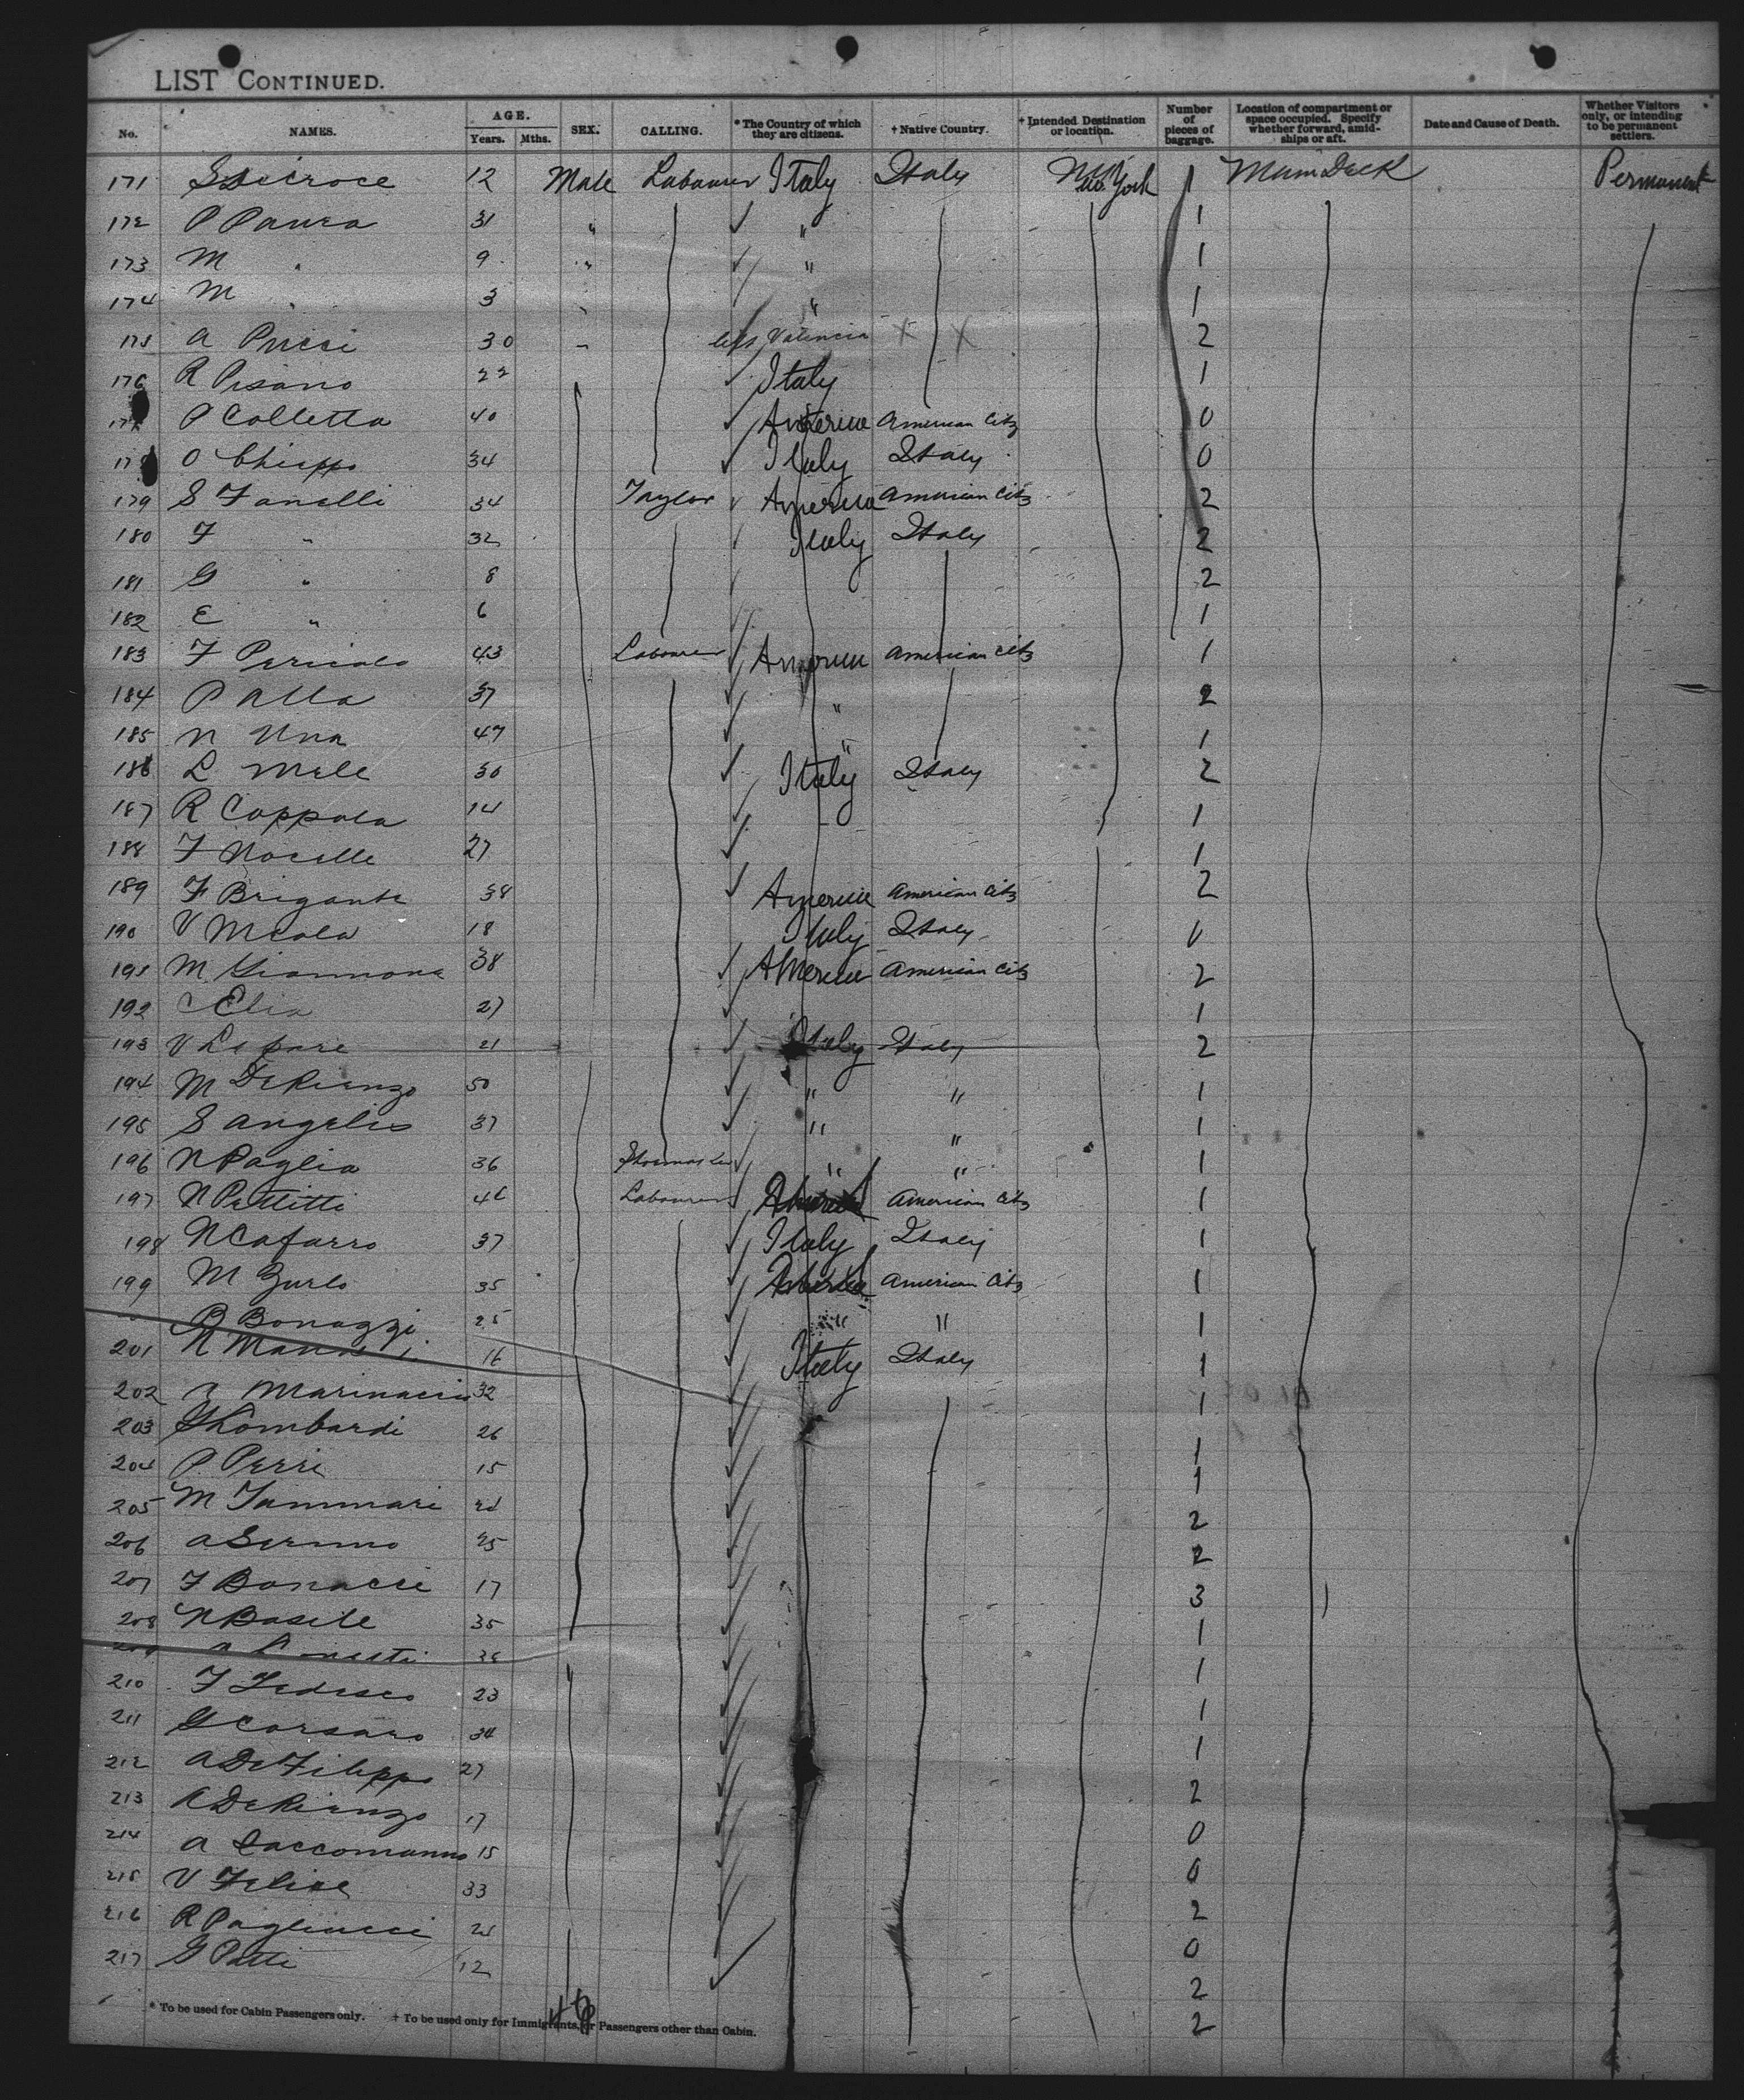 LIST CONTINUED.
No. NAMES. AGE. Years. Mths. SEX. CALLING. * The Country of which they are citizens. + Native Country. + Intended Destination or location. Number of pieces of baggage. Location of compartment or space occupied. Specify whether forward, amidships or aft. Date and Cause of Death. Whether Visitors only, or intending to be permanent settlers.
171 12 Male Labourer Italy Italy New York 1 Permanent
172 P Paura 31 " " 1
173 M " 9 " " 1
174 M " 3 " 1
175 A Pucci 30 Valencia X X 2
176 R Pisano 22 Italy 1
P Colletta 40 America American Citz 0
O Chiappo 34 Italy Italy 0
179 S Fanelli 34 Taylor America American Citz 2
180 F " 32 Italy Italy 2
181 G " 8 2
182 E " 6 1
183 F 43 Labourer America American Citz 1
184 P Alla 37 " 2
185 N Una 47 " 1
186 L Mele 30 Italy Italy 2
187 R Coppola 14 1
188 F Nocelle 27 1
189 F Brigante 38 America American Citz 2
190 V Meola 18 Italy Italy 0
191 M Giannone 38 America American Citz 2
192 C Elia 27 1
193 V Lepore 21 Italy Italy 2
194 M DeRienzo 50 " " 1
195 S Angelis 37 " " 1
196 N Paglia 36 Shoemaker " " 1
197 N Pettitti Labourer American Citz 1
198 N Cafarro 37 Italy Italy 1
199 M Zurlo 35 American Citz 1
B Bonazzi 25 " " 1
201 N 16 Italy Italy 1
202 Marinaccio 32 1
203 Lombardi 26 1
204 P. Perri 15 1
205 M Tammari 2
206 A 25 2
207 F Bonacci 17 3
208 N Basile 35 1
1
210 F Tedesco 23 1
211 G Corsaro 34 1
212 A DeFilippo 27 2
213 A DeRienzo 17 0
214 A Saccomanno 15 0
215 V Felice 33 2
216 R Pagliucci 0
217 G Patti 12 2
2
* To be used for Cabin Passengers only. + To be used only for Immigrants, or Passengers other than Cabin.